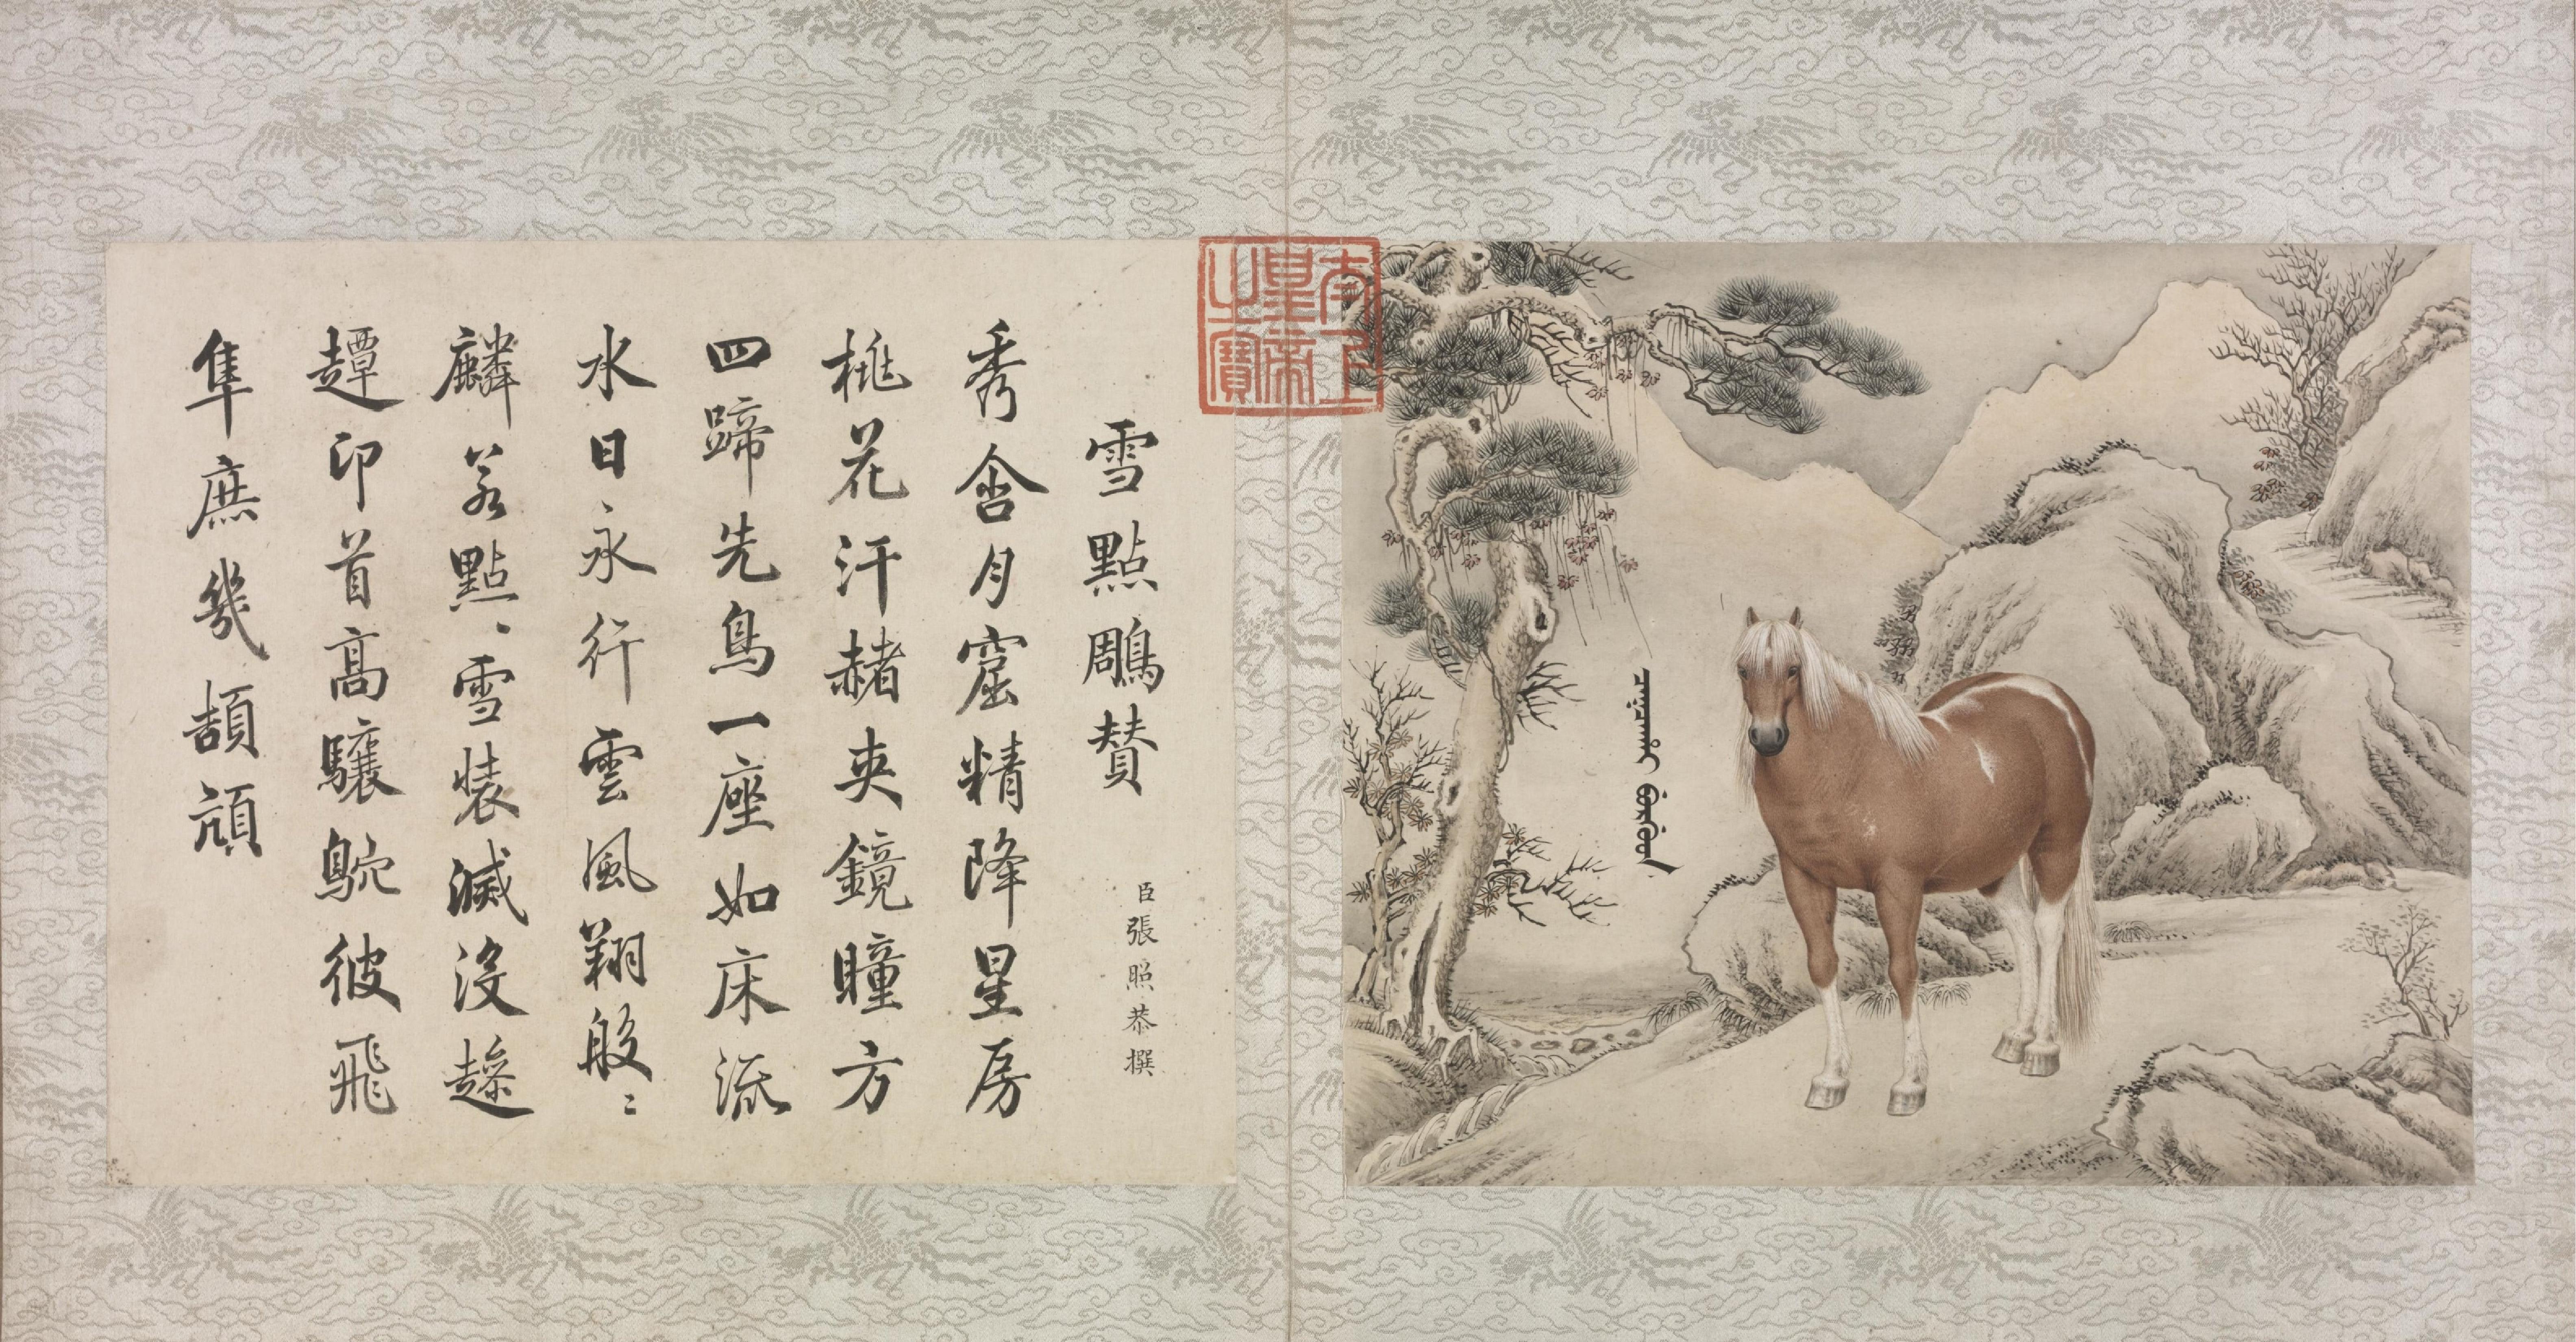 太上皇帝之寶
雪點鵰贊
臣張照恭撰
秀含月窟精降星房
桃花汗赭夾鏡瞳方
四蹄先鳥一座如床流
水日永行雲風翔般〻
麟若點〻雪裝滅沒趮
趯印首高驤鴥彼飛
隼庶幾頡頏